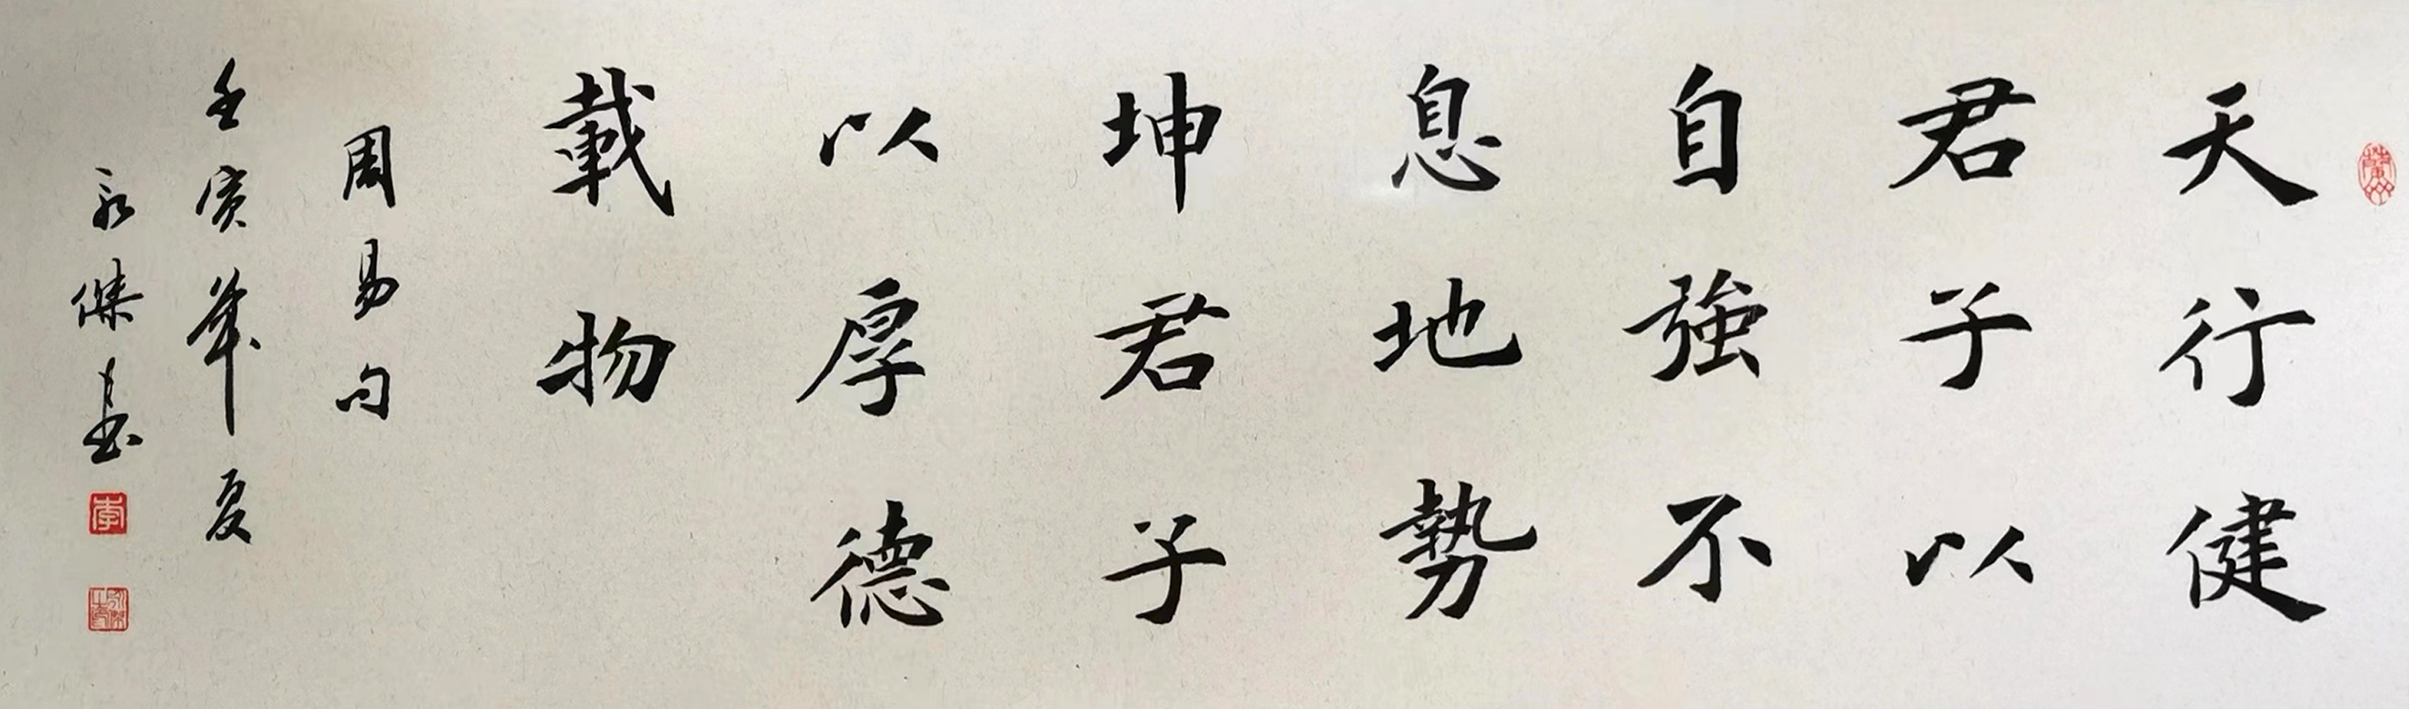 天行健
君子以
自強不
息地勢
坤君子
以厚德
載物
周易句
壬寅年夏
永傑書
李